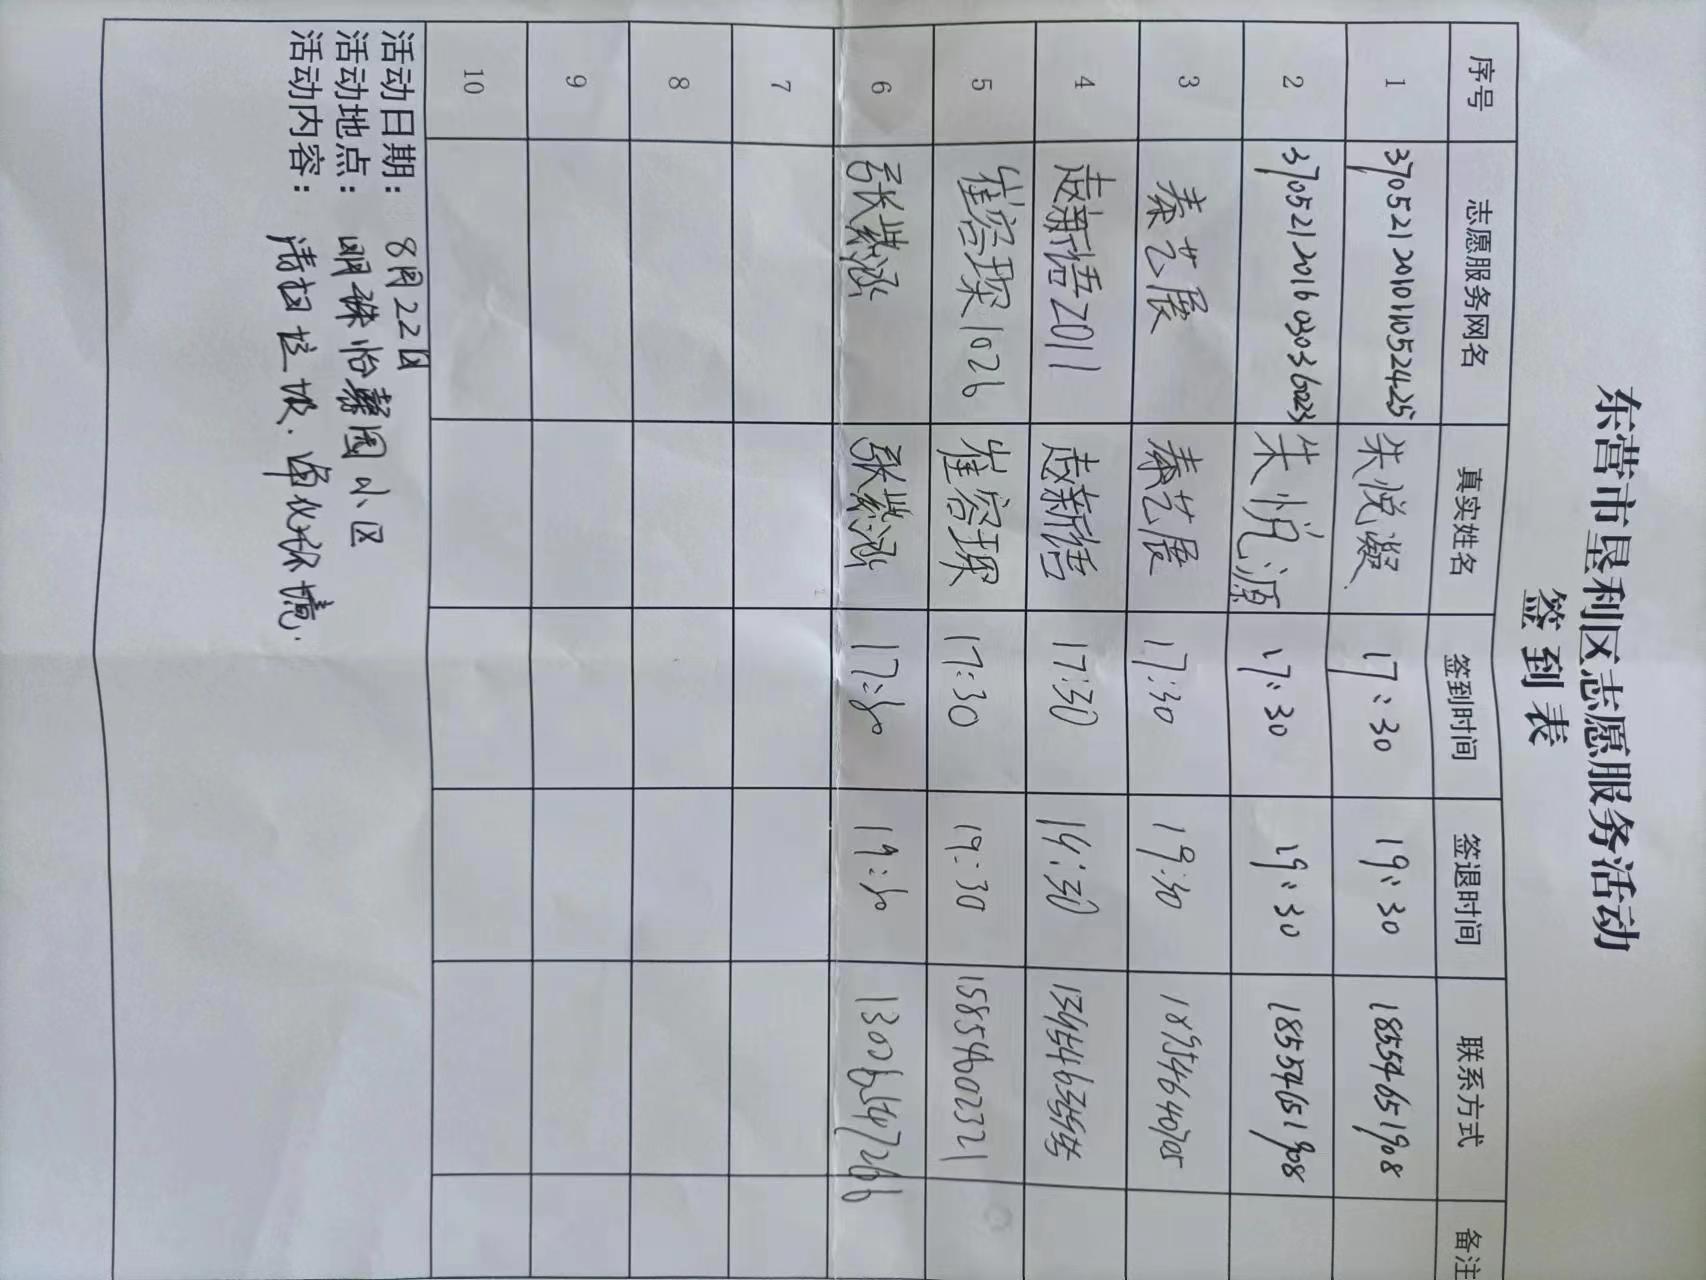 东营市垦利区志愿服务活动
签到表
序号 志愿服务网名 真实姓名 签到时间 签退时间 联系方式 备注
1 370521201011052425 朱悦凝 17:30 19:30 18554651908
2 370521201603036023 朱悦源 17:30 19:30 18554651908
3 秦艺展 秦艺展 17:30 19:30
4 赵新悟2011 赵新悟 17:30 19:30
5 崔容琛1026 崔容琛 17:30 19:30 15854602321
6 张紫涵 张紫涵 17:30 19:30
7
8
9
10
活动日期: 8月22日
活动地点: 明珠怡馨园小区
活动内容: 清扫垃圾.净化环境.